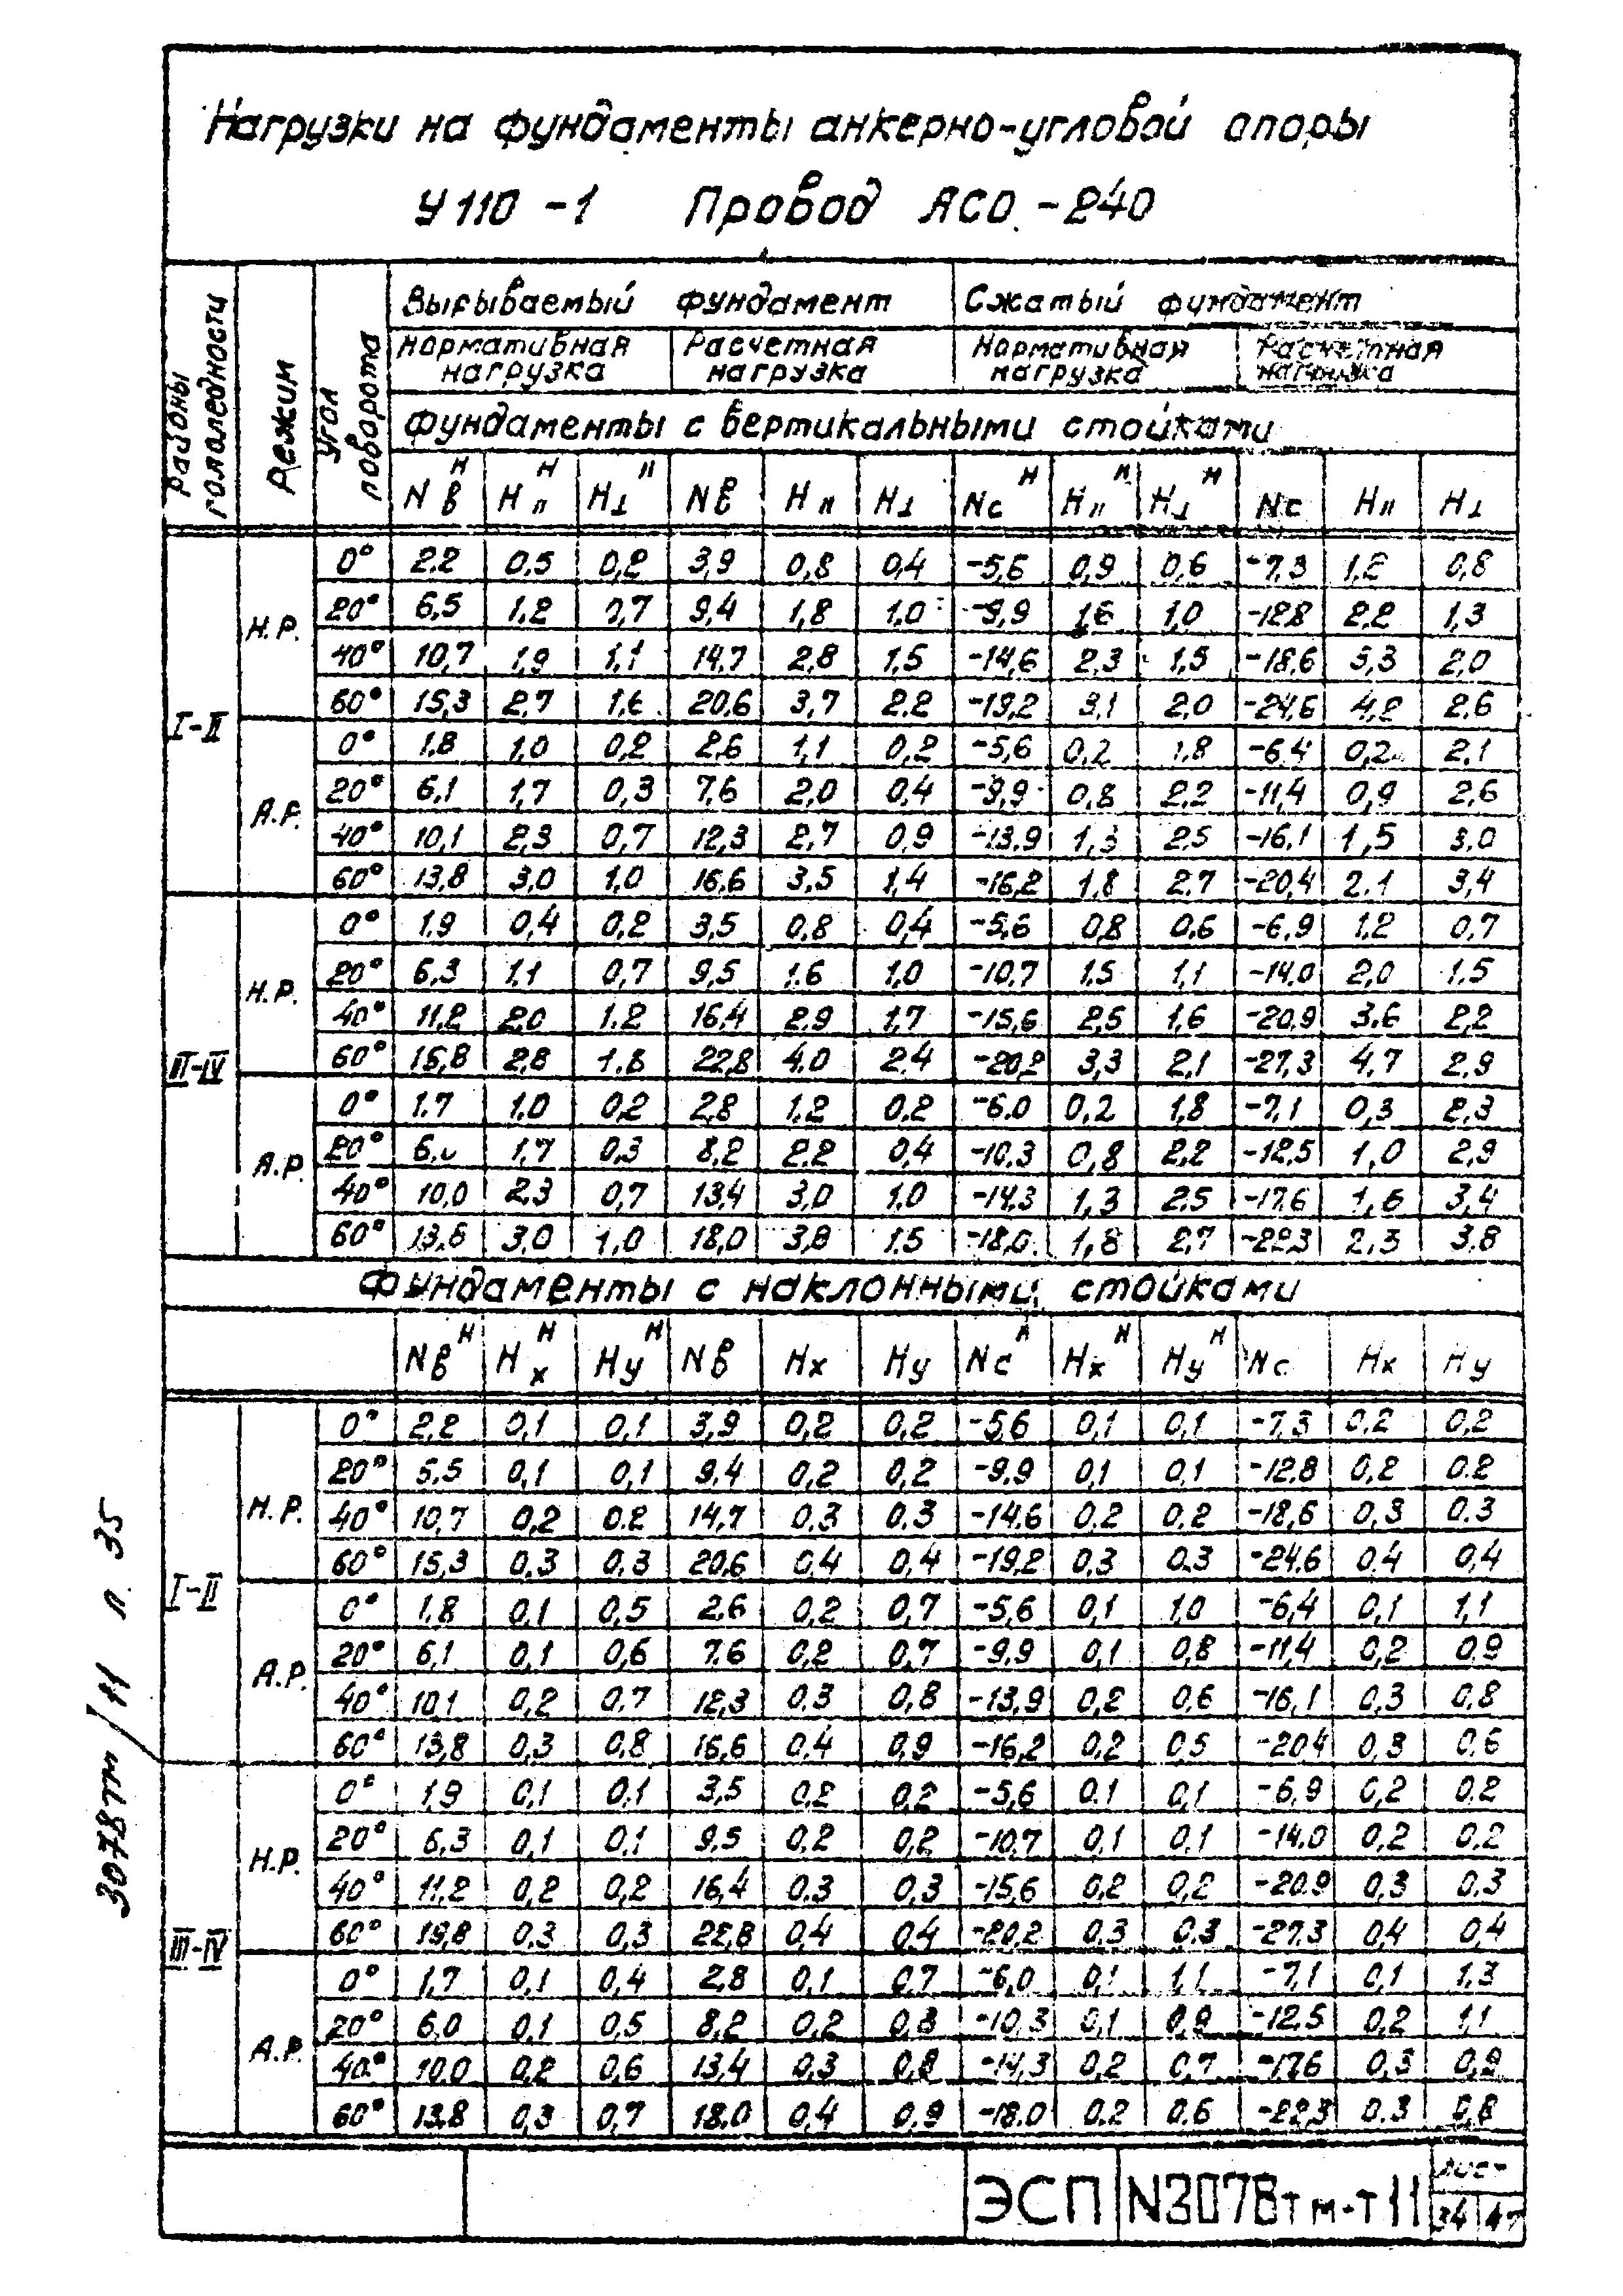 Нагрузки на фундаменты анкерно-угловой опоры
У110-1 Провод АСО-240
Районы гололедности Режим Угол поворота Вырываемый фундамент Сжатый фундамент
Нормативная нагрузка Расчетная нагрузка Нормативная нагрузка Расчетная нагрузка
Фундаменты с вертикальными стойками
Nв н Hп н H⊥ н Nв Hп H⊥ Nс н Hп н H⊥ н Nс Hп H⊥
I-II Н.Р. 0° 2.2 0,5 0,2 3,9 0,8 0,4 -5,6 0,9 0,6 -7,3 1,2 0,8
20° 6,5 1,2 0,7 9,4 1,8 1,0 -9,9 1,6 1,0 -12,8 2,2 1,3
40° 10,7 1,9 1,1 14,7 2,8 1,5 -14,6 2,3 1,5 -18,6 3,3 2,0
60° 15,3 2,7 1,6 20,6 3,7 2.2 -19,2 3,1 2,0 -24,6 4,2 2,6
А.Р. 0° 1.8 1,0 0,2 2,6 1,1 0,2 -5,6 0,2 1,8 -6.4 0,2 2,1
20° 6,1 1,7 0,3 7,6 2,0 0,4 -9,9 0,8 2,2 -11,4 0,9 2,6
40° 10,1 2,3 0,7 12,3 2,7 0,9 -13,9 1,3 2.5 -16,1 1,5 3,0
60° 13,8 3,0 1,0 16,6 3,5 1,4 -16,2 1,8 2.7 -20,4 2.1 3,4
III-IV Н.Р. 0° 1.9 0,4 0,2 3,5 0,8 0,4 -5,6 0,8 0,6 -6,9 1,2 0,7
20° 6,3 1,1 0,7 9,5 1.6 1,0 -10,7 1,5 1,1 -14,0 2,0 1.5
40° 11,2 2,0 1.2 16,4 2,9 1,7 -15,6 2,5 1,6 -20,9 3.6 2,2
60° 15,8 2,8 1.8 22,8 4,0 2.4 -20,2 3,3 2,1 -27,3 4,7 2,9
А.Р. 0° 1.7 1,0 0,2 2,8 1.2 0.2 -6.0 0,2 1,8 -7,1 0,3 2.3
20° 1,7 0,3 8,2 2.2 0,4 -10,3 0,8 2,2 -12,5 1,0 2,9
40° 10,0 2.3 0,7 13,4 3,0 1,0 -14,3 1,3 2.5 -17,6 1,6 3,4
60° 13,6 3,0 1,0 18,0 3,8 1.5 -18,0 1,8 2,7 -22,3 2,3 3,8
Фундаменты с наклонными стойками
Nв н Hх н Hу н Nв Hх Hу Nс н Hх н Hу н Nс Hх Hу
I-II Н.Р. 0° 2,2 0,1 0,1 3,9 0,2 0,2 -5,6 0,1 0,1 -7,3 0,2 0,2
20° 5,5 0,1 0,1 9,4 0,2 0,2 -9,9 0,1 0,1 -12,8 0,2 0.2
40° 10,7 0,2 0.2 14,7 0,3 0.3 -14.6 0.2 0,2 -18,6 0,3 0.3
60° 15,3 0,3 0,3 20,6 0,4 0,4 -19,2 0,3 0.3 -24,6 0.4 0,4
А.Р. 0° 1,8 0,1 0,5 2,6 0,2 0,7 -5,6 0,1 1.0 -6,4 0,1 1,1
20° 6,1 0,1 0,6 7.6 0,2 0,7 -9,9 0,1 0,8 -11,4 0,2 0,9
40° 10,1 0,2 0,7 12,3 0.3 0,8 -13,9 0,2 0,6 -16,1 0,3 0,8
60° 13,8 0,3 0,8 16,6 0.4 0,9 -16,2 0.2 0,5 -20,4 0,3 0.6
III-IV Н.Р. 0° 1,9 0,1 0,1 3,5 0,2 0,2 -5,6 0.1 0,1 -6,9 0,2 0.2
20° 6,3 0,1 0.1 9.5 0,2 0,2 -10,7 0,1 0.1 -14.0 0,2 0.2
40° 11,2 0,2 0,2 16,4 0.3 0,3 -15,6 0.2 0,2 -20.9 0,3 0.3
60° 19,8 0.3 0,3 22,8 0,4 0,4 -20,2 0.3 0.3 -27.3 0,4 0,4
А.Р. 0° 1,7 0,1 0,4 2,8 0,1 0.7 -6,0 0,1 1,1 -7,1 0,1 1.3
20° 6,0 0,1 0,5 8,2 0.2 0,8 -10,3 0,1 0,9 -12,5 0,2 1,1
40° 10,0 0,2 0,6 13,4 0,3 0,8 -14,3 0,2 0,7 -17,6 0,3 0,9
60° 13,8 0,3 0,7 18,0 0,4 0,9 -18.0 0.2 0.6 -22,3 0.3 0,8
ЭСП N3078тм-т11 Лист
34 47
3078тм/11 л. 35